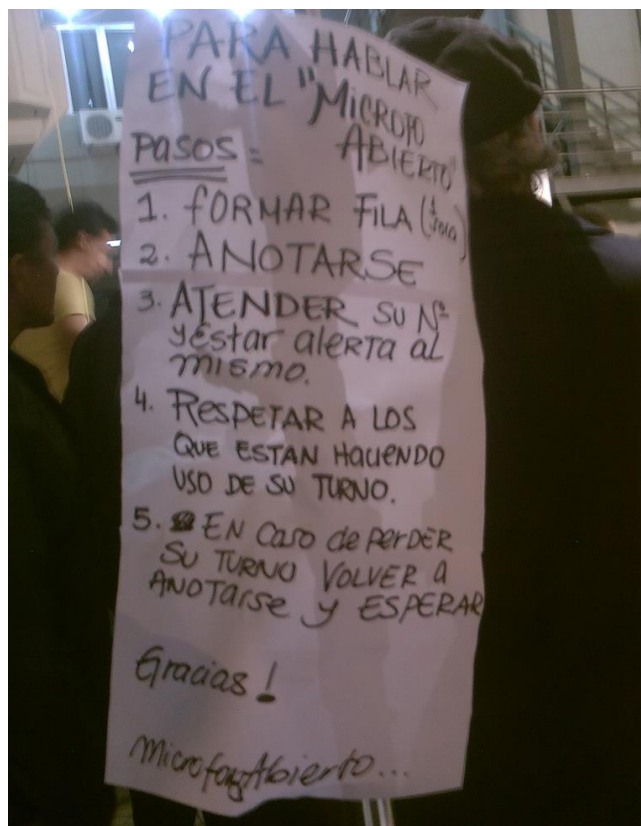 PARA HABLAR
EN EL "MICROFO
ABIERTO"
PASOS =
1. FORMAR FILA (
2. ANOTARSE
3. ATENDER SU Nº
y Estar alerta al
mismo.
4. RESPETAR A LOS
QUE ESTAN HACIENDO
USO DE SU TURNO.
5. EN Caso de PerDER
SU TURNO VOLVER a
ANOTarse y ESPERAR
Gracias!
MicrofonoAbierto...